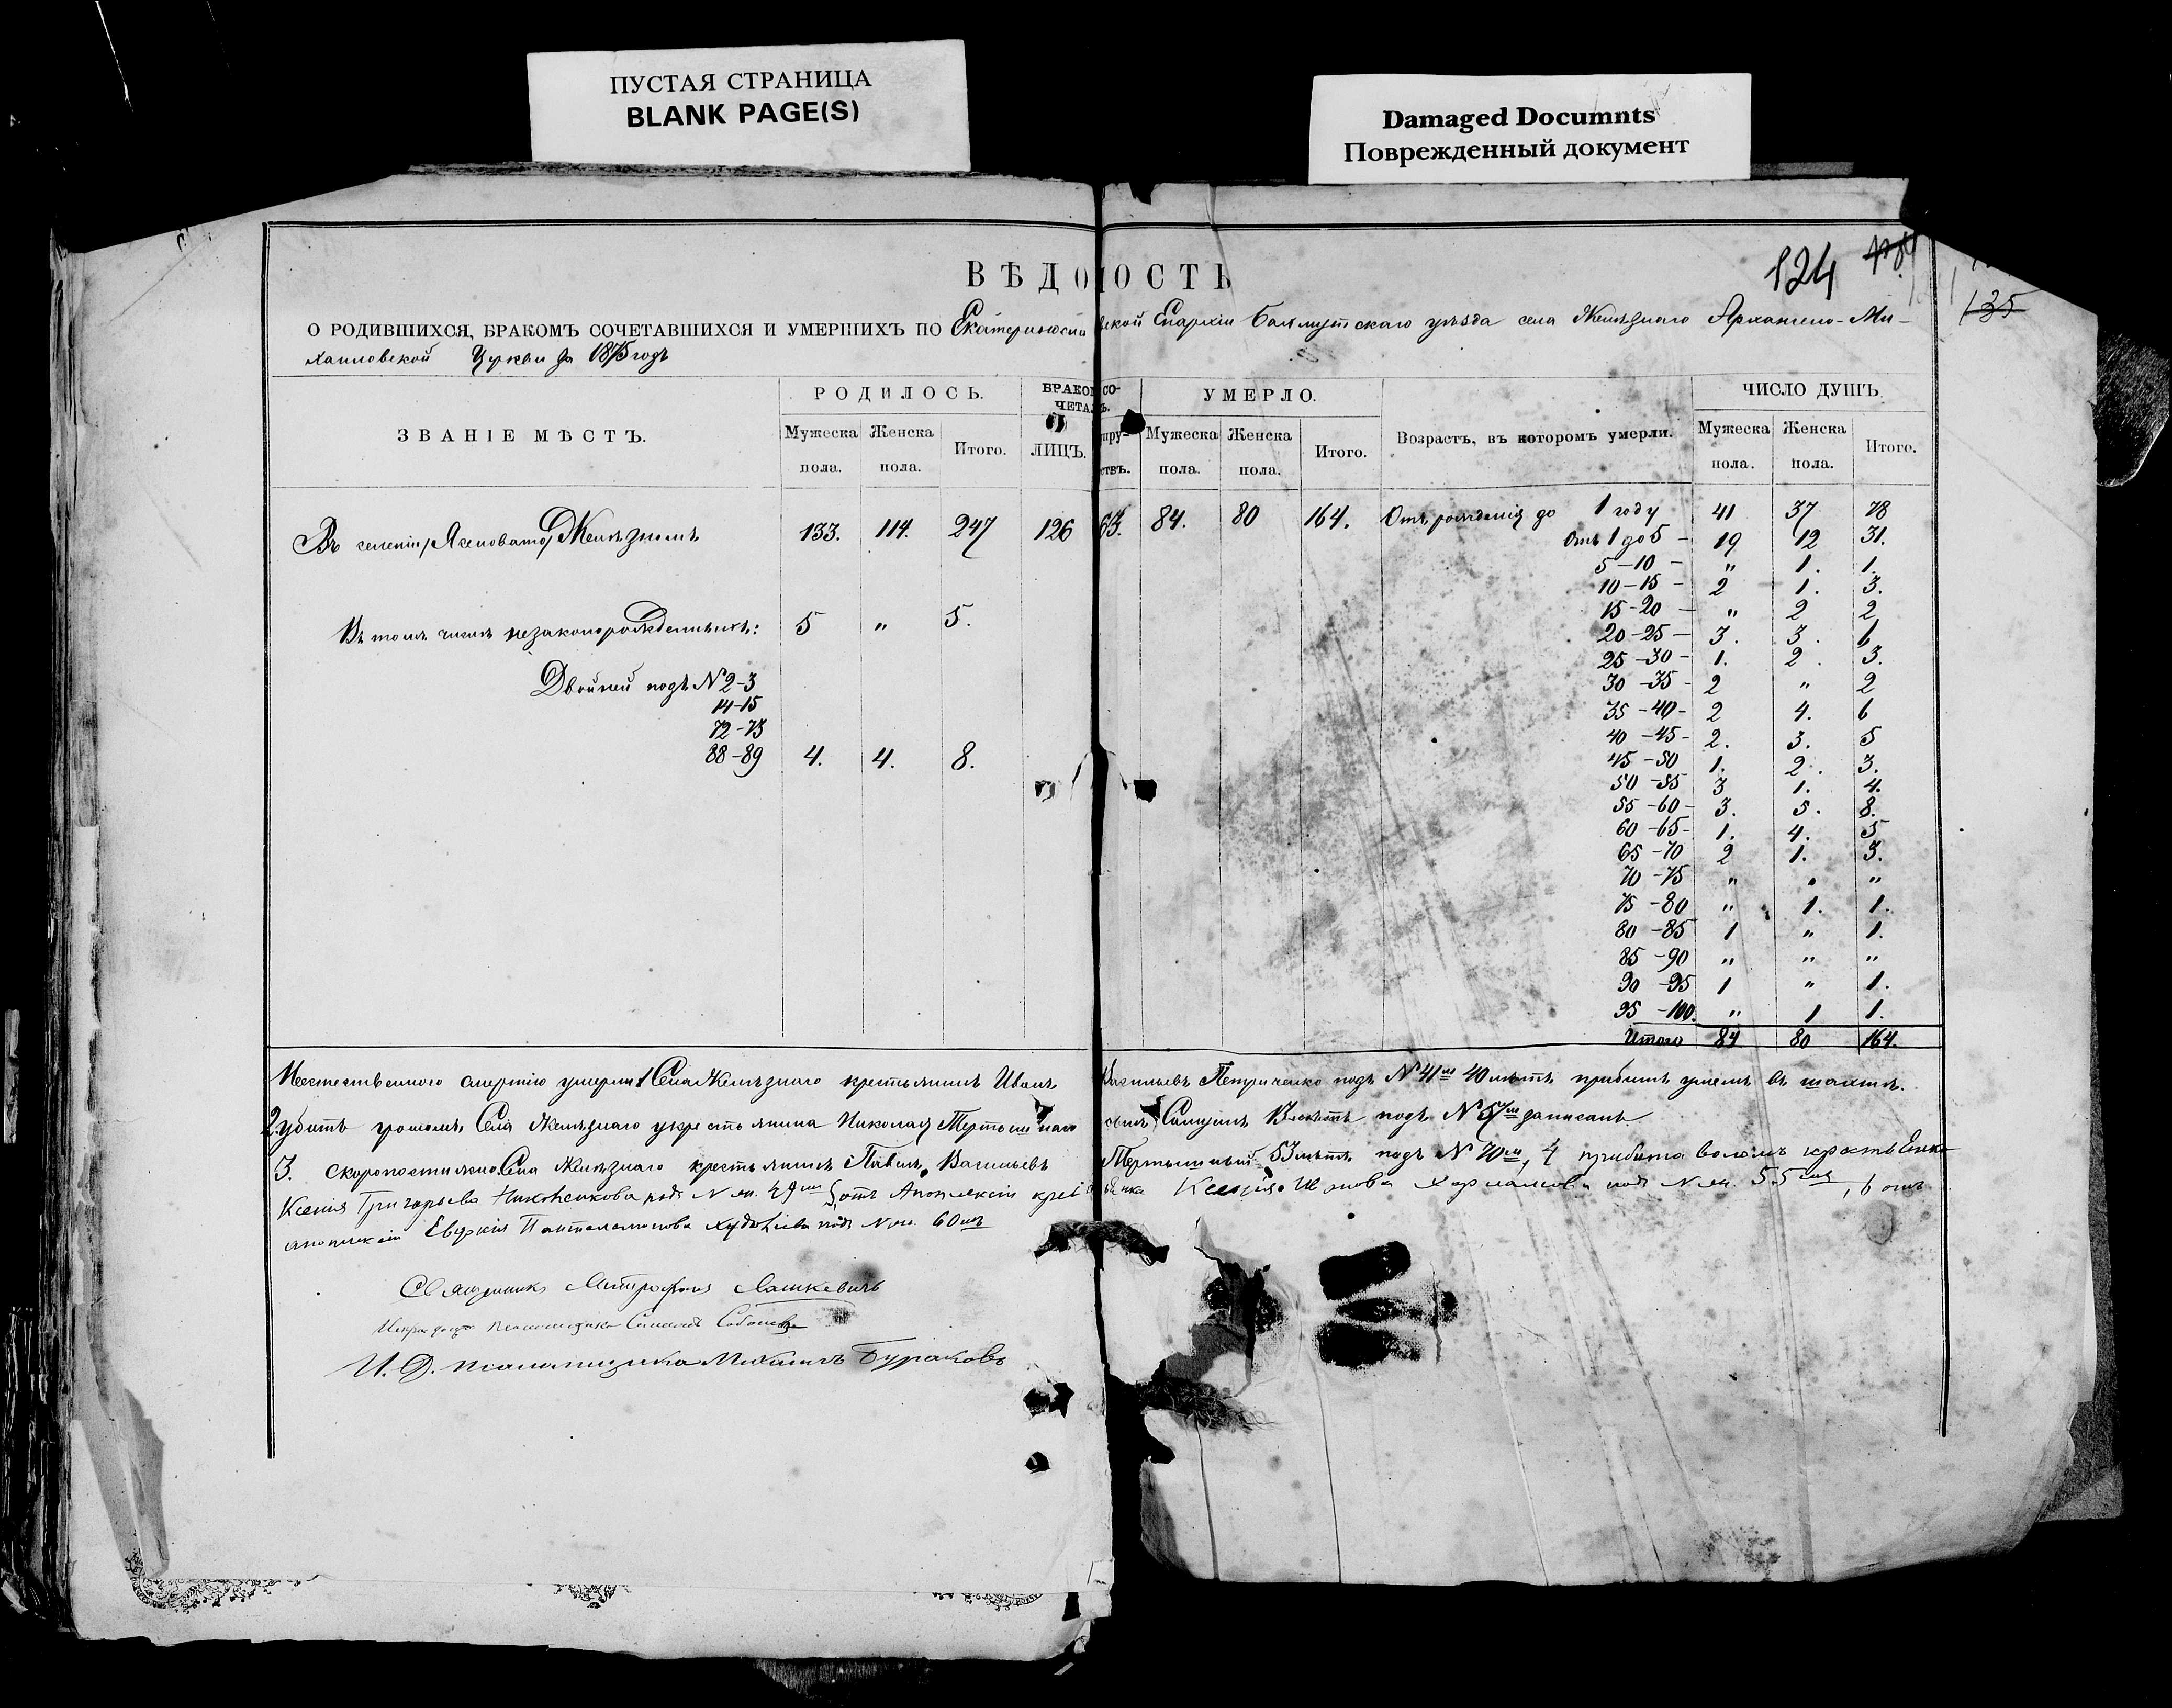 ПУСТАЯ СТРАНИЦА
BLANK PAGE(S)
Damaged Documnts
Поврежденный документ
124
135
ВѢДОМОСТЬ
О РОДИВШИХСЯ, БРАКОМЪ СОЧЕТАВШИХСЯ И УМЕРШИХЪ ПО Екатеринославской Епархіи Бахмутскаго уѣзда села Желѣзнаго Архангело-Ми-
хаиловской Церкви за 1875 годъ
ЗВАНІЕ МѢСТЪ. РОДИЛОСЬ. БРАКОМ СО- УМЕРЛО. Возрастъ, въ которомъ умерли. ЧИСЛО ДУШЪ.
ЧЕТАЛ Ь.
Мужеска Женска Итого. ЛИЦЪ. пру- Мужеска Женска Итого. Мужеска Женска Итого.
пола. пола. ствъ. пола. пола. пола. пола.
Въ селеніи Желѣзномъ 133. 114. 247 126 63. 84. 80 164. Отъ рожденія до 1 году 41 37 78
Отъ 1 до 5 - 19 12 31.
5-10 - " 1. 1.
10-15 - 2 1. 3.
15-20 - " 2 2
Въ томъ числѣ незаконорожденныхъ: 5 " 5.
20-25 - 3. 3. 6
25-30 - 1. 2. 3.
Двойней подъ № 2-3
30-35 - 2 " 2
14-15
35-40 - 2 4. 6
72-73
40-45 - 2. 3. 5
88-89 4. 4. 8.
45-50 1. 2. 3.
50-55 3 1. 4.
55-60 - 3. 5. 8.
60-65 - 1. 4. 5
65-70 2 1. 3.
70-75 " " "
75-80 " 1. 1.
80-85 1 " 1.
85-90 " " "
90-95 1 " 1.
95-100. " 1 1.
Итого 84 80 164.
смертію умерли 1 Села Желѣзнаго крестьянинъ Иванъ Васильевъ Петриченко подъ № 41 40 лѣтъ въ шахтѣ.
2. убитъ громомъ Села Желѣзнаго крестьянина Николая сынъ подъ № 57 записанъ
3. скоропостижно Села Желѣзнаго крестьянинъ Павелъ Васильевъ 53 лѣтъ подъ № 70, 4
Ксенія Григорьева подъ 49 5, отъ Апоплексіи Ксенія 55, 6 отъ
апоплексіи Пантелеимонова подъ 60
Священникъ Митрофанъ
И. Д. псаломщика Михаилъ Бураковъ